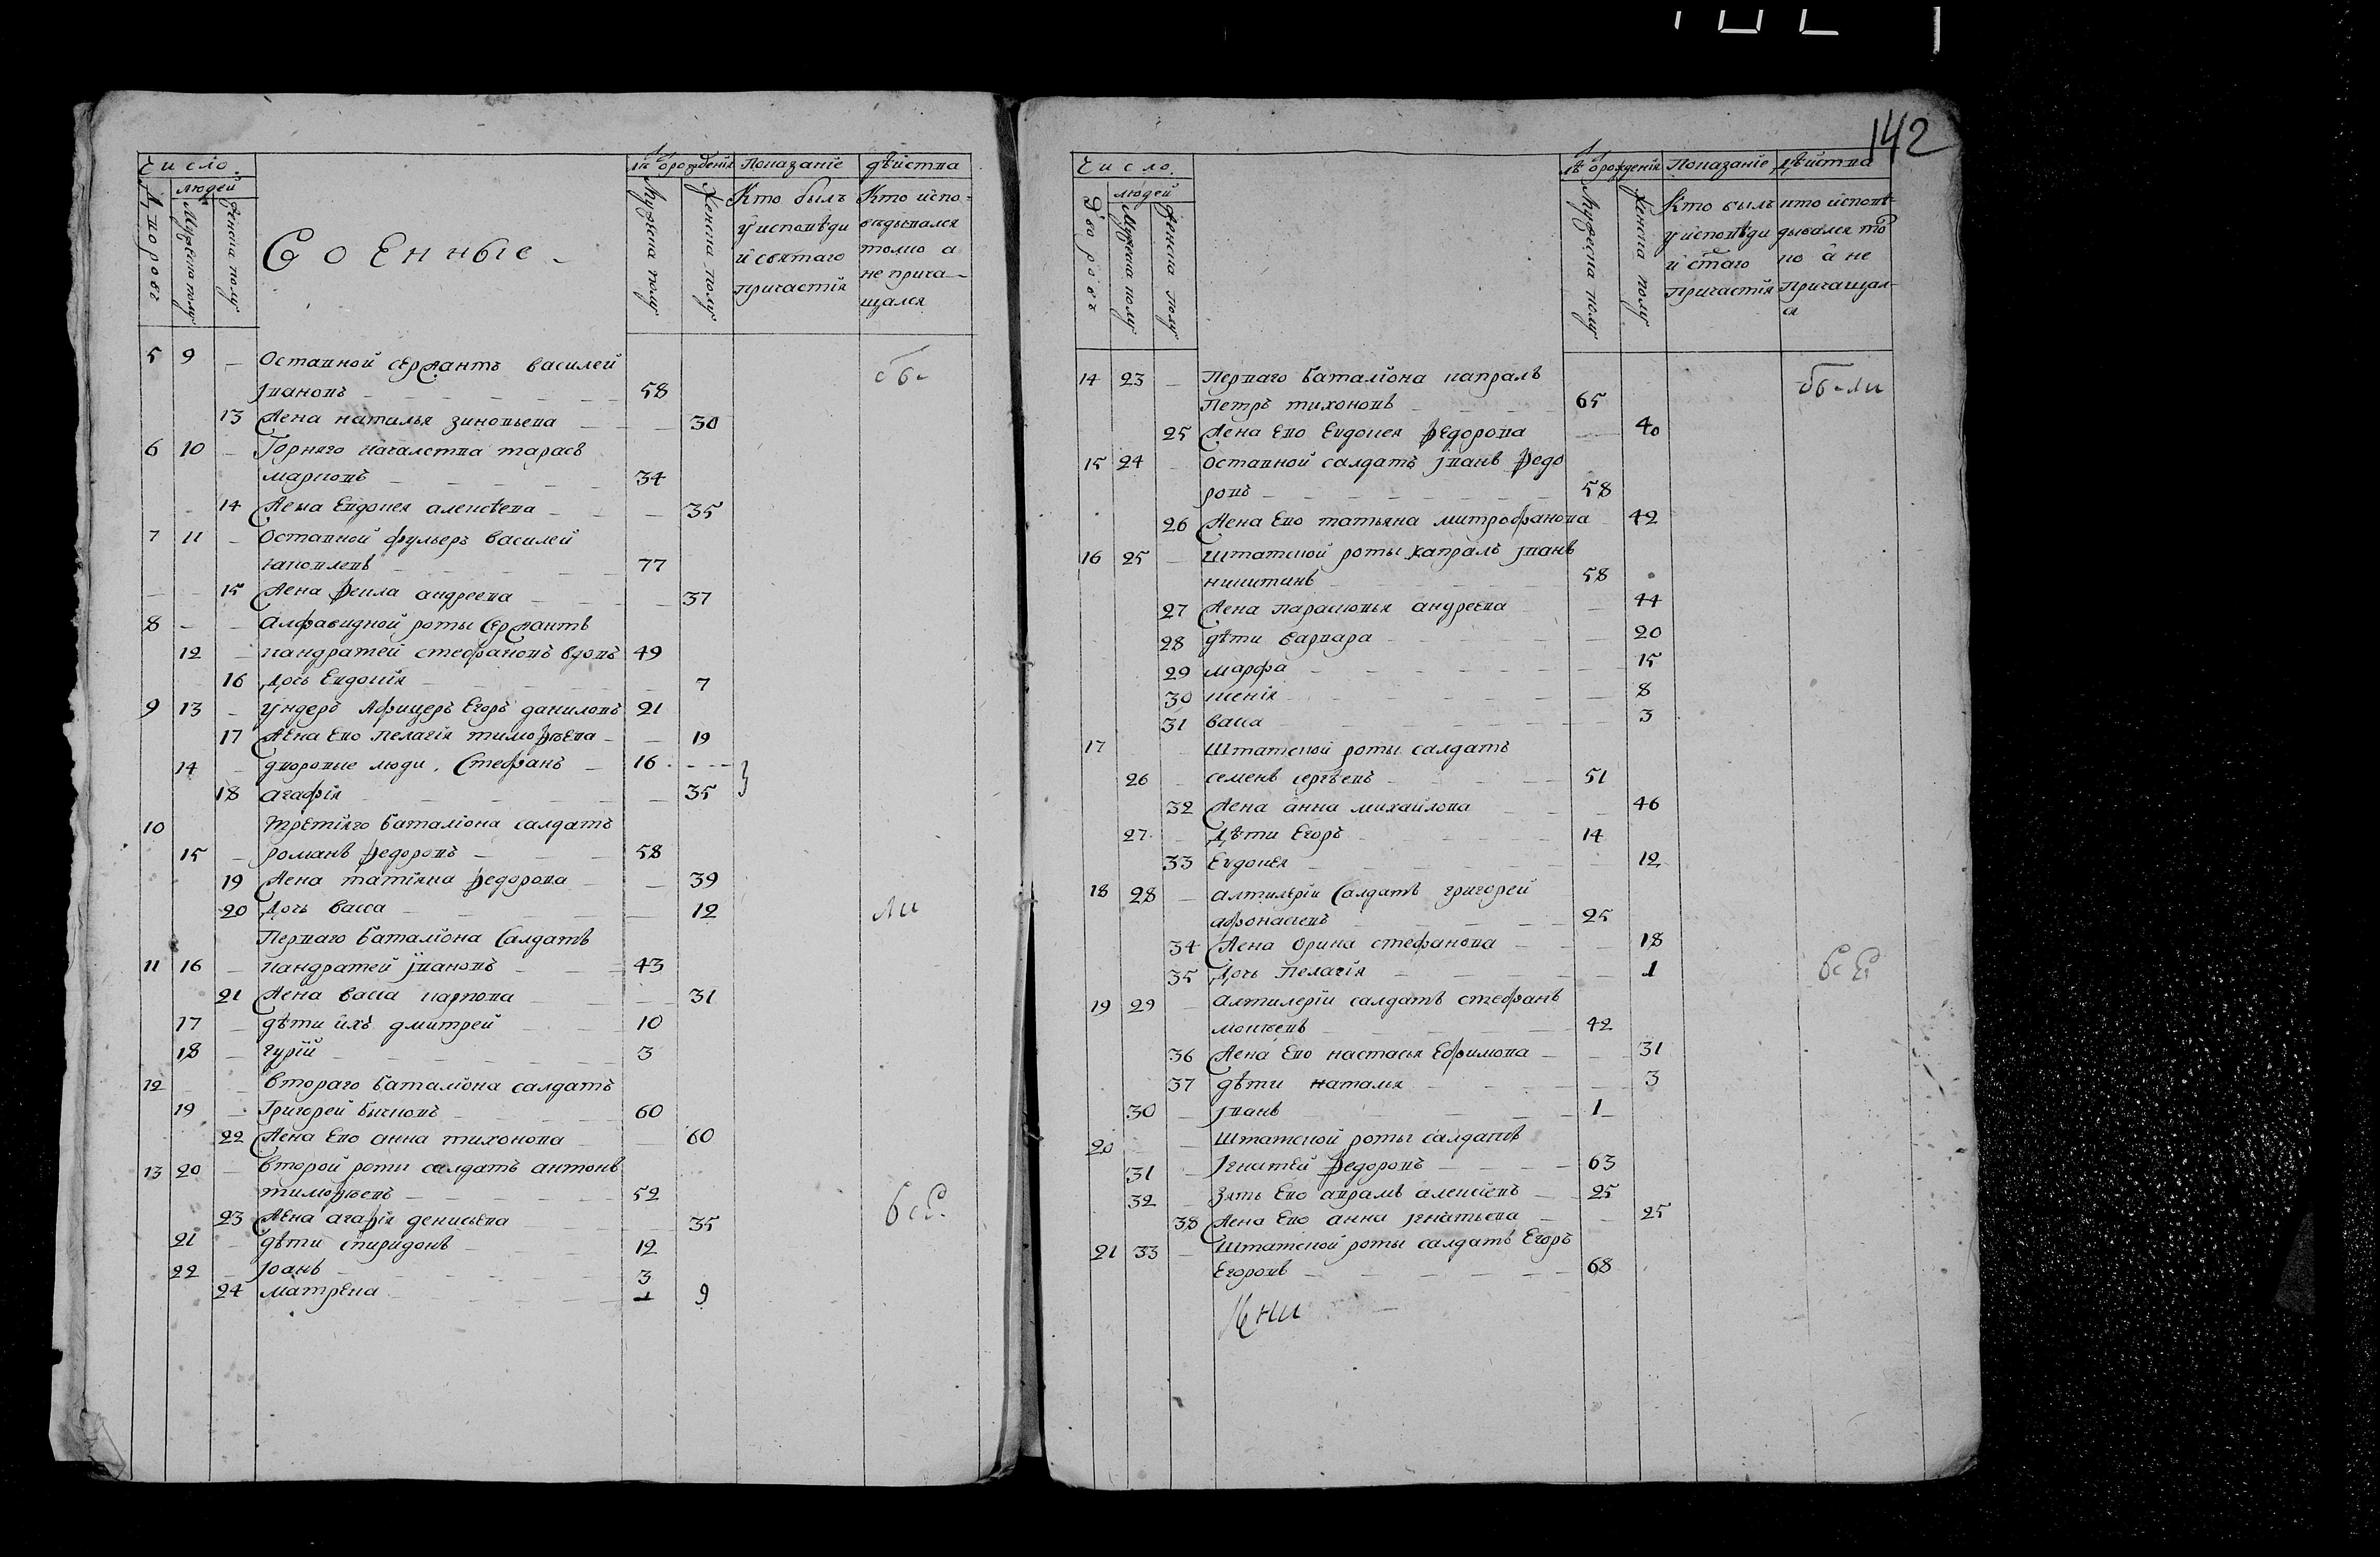 142
Число
людей
Дворовъ
Мужеска полу
Женска полу
Военные
Лѣ. ѡ рожденія
Мужеска полу
Женска полу
Показаніе
дѣиства
Кто былъ
у исповѣди
и святаго
причастія
Кто испо-
ведывался
толко а
не прича-
щался
5 9 – Оставной сержантъ василей
Iвановъ 58
13 Жена наталья зиновьева 30
6 10 – Горняго началства тарасъ
марковъ 34
14 Жена Евдокея алексѣева 35
7 11 – Оставной фурьеръ василей
яковлевъ 77
15 Жена Фекла андреева 37
8 – – Алфавидной роты сержантъ
12 – кандратей стефановъ вдовъ 49
16 Дочь Евдокія 7
9 13 – ундеръ Афицеръ Егоръ даниловъ 21
17 Жена Ево пелагія тимоѳѣева 19
14 – дворовые люди. Стефанъ 16
18 агафія 35
10 Третіяго баталіона салдатъ
15 – романъ Федоровъ 58
19 Жена татіяна Федорова 39
20 Дочь васса 12
Перваго баталіона Салдатъ
11 16 – кандратей Iвановъ 43
21 Жена васса карпова 31
17 – дѣти ихъ дмитрей 10
18 – гурій 3
12 – – Втораго баталіона салдатъ
19 – Григорей быковъ 60
22 Жена Ево анна тихонова 60
13 20 – второй роты салдатъ антонъ
тимоѳѣевъ 52
23 Жена агаѳія денисьева 35
21 – дѣти спиридонъ 12
22 – Iоанъ 3
24 матрена 9
ли
Число
людей
Дворовъ
Мужеска полу
Женска полу
Лѣ. ѡ рожденія
Мужеска полу
Женска полу
Показаніе
дѣйства
Кто былъ
у исповѣди
и стаго
Причастія
кто исповѣ-
дывался тол
ко а не
Причащал-
ся
14 23 – Перваго баталіона капралъ
Петръ тихоновъ 65
25 Жена Ево Евдокея Федорова 40
15 24 – оставной салдатъ Iванъ Федо
ровъ 58
26 Жена Ево татьяна митрофанова 42
16 25 – штатской роты капралъ Iванъ
никитинъ 58
27 Жена парасковья андреева 44
28 дѣти варвара 20
29 марфа 15
30 ксенія 8
31 васса 3
17 – Штатской роты салдатъ
26 – семенъ сергѣевъ 51
32 Жена анна михайлова 46
27 – Дѣти Егоръ 14
33 Евдокея 12
18 28 – алтилеріи Салдатъ григорей
афонасьевъ 25
34 Жена орина стефанова 18
35 Дочь пелагія 1
19 29 – алтилеріи салдатъ стефанъ
мокѣевъ 42
36 Жена Ево настасья Ефимова 31
37 дѣти наталья 3
30 – Iванъ 1
20 – – Штатской роты салдатъ
31 – Iгнатей Федоровъ 63
32 – Зять Ево аврамъ алексѣевъ 25
38 Жена Ево анна Iгнатьева 25
21 33 – Штатской роты салдатъ Егоръ
Егоровъ 68